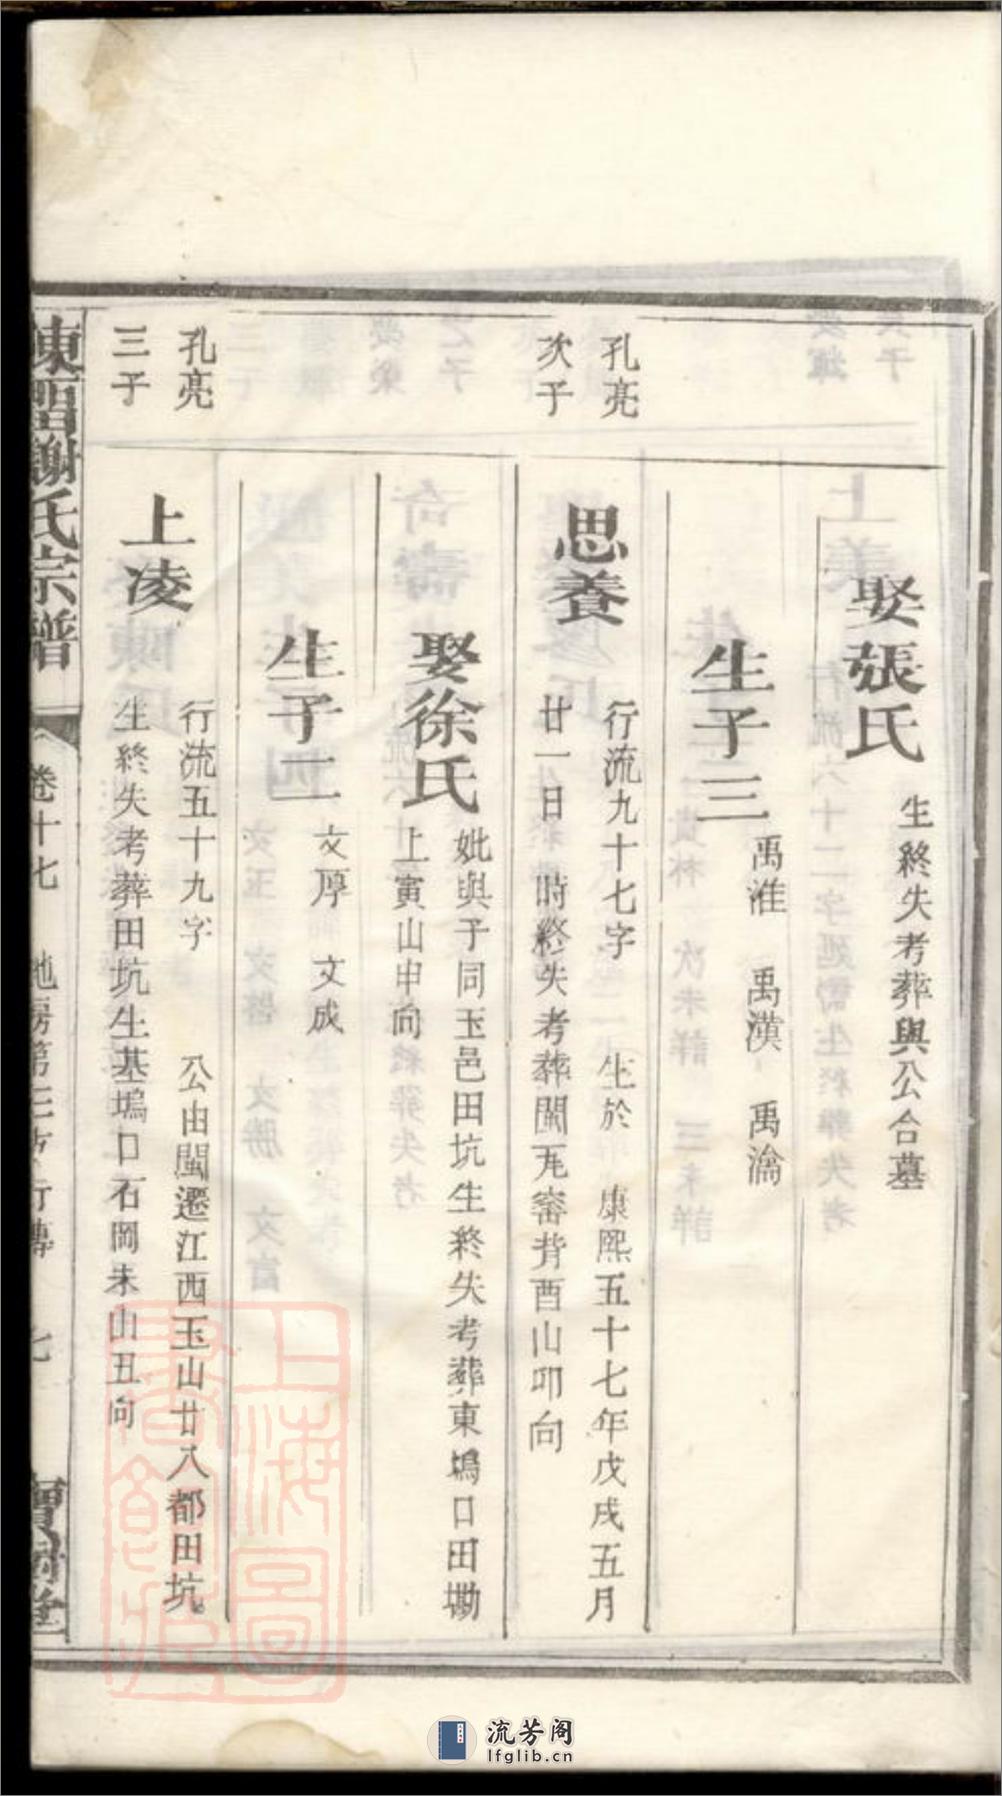 娶張氏
生終失考葬與公合墓
生子三
禹淮 禹漢 禹瀹
孔亮
次子
思養
行流九十七字 生於 康熙五十七年戊戌五月
廿一日 時終失考葬閩瓦窰背酉山卯向
娶徐氏
妣與子同玉邑田坑生終失考葬東塢口田墈
上寅山申向
生子二
文厚 文成
孔亮
三子
上凌
行流五十九字 公由閩遷江西玉山廿八都田坑
生終失考葬田坑生基塢口石岡未山丑向
謝氏宗譜
卷十七
七
上海圖書館藏
流芳阁
lfglib.cn